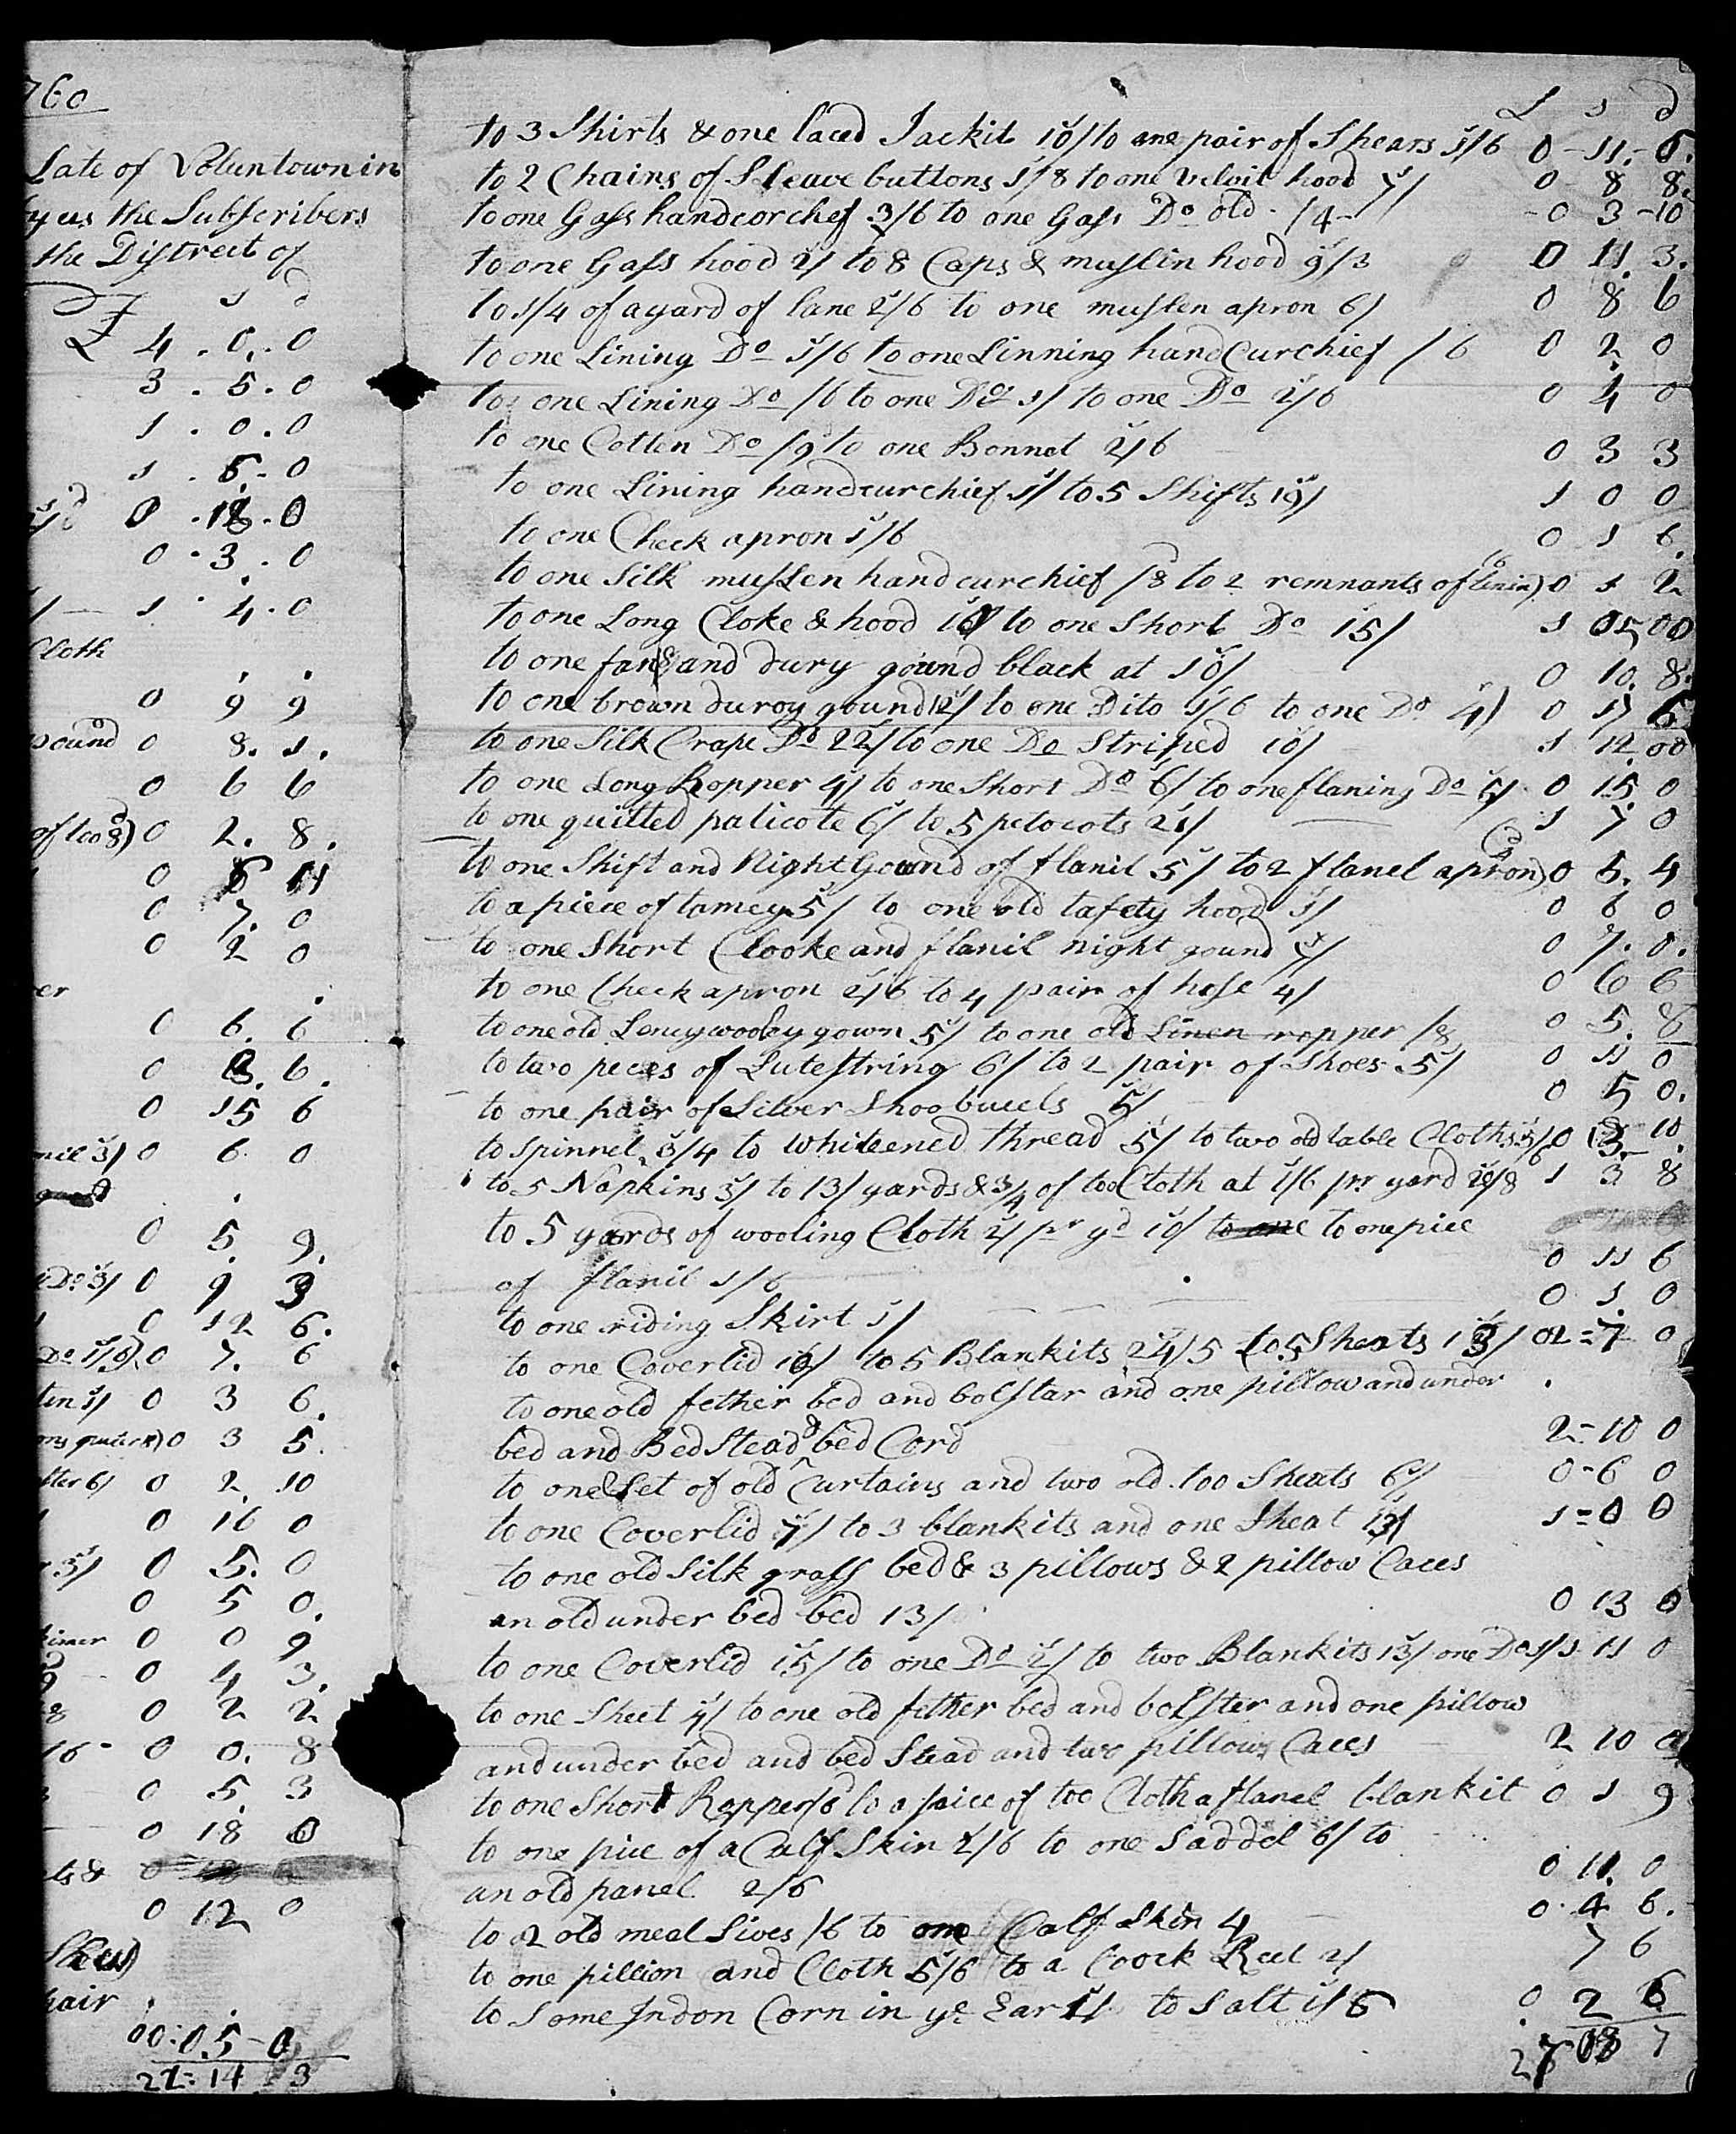 760
Late of Voluntown in
by us the Subscribers
the Distrect of
£ s d
£ 4 . 0 . 0
3 . 5 . 0
1 . 0 . 0
1 . 5 . 0
0 . 18 . 0
0 . 3 . 0
1 . 4 . 0
Cloth
0 9 9
pound 0 8 . 1 .
0 6 6
of too 8) 0 2 . 8 .
0 11
0 7 . 0
0 2 0
er
0 6 . 6
0 8 . 6 .
0 15 6
3/ 0 6 0
0 5 9 .
Do 3/ 0 9 3
0 12 6 .
Do 1/6) 0 7 . 6
1/ 0 3 6 .
0 3 5 .
6/ 0 2 10
0 16 0
3/ 0 5 . 0
0 5 0 .
0 0 9
9 0 4 3 .
8 0 2 2
/6 - 0 0 . 8
0 5 . 3
0 18 0
ts &
0 12 0
hair
00 : 05 - 0
22 = 14 3
£ s d
to 3 Shirts & one laced Jackit 10/ to one pair of Shears 1/6 0 - 11 . - 6 .
to 2 Chains of Sleave buttons 1/8 to one velvit hood 7/ 0 8 8 .
to one Gass handcorchef 3/6 to one Gass Do old - /4 - - 0 3 - 10
to one Gass hood 2/ to 8 Caps & muslin hood 9/3 0 11 . 3 .
to 1/4 of a yard of lane 2/6 to one muslen apron 6/ 0 8 6
to one Lining Do 1/6 to one Linning hand Curchief /6 0 2 0
to one Lining Do /6 to one Do 1/ to one Do 2/6 0 4 0
to one Cotten Do /9 to one Bonnet 2/6 0 3 3
to one Lining handcurchief 1/ to 5 Shifts 19/ 1 0 0
to one Check apron 1/6 0 1 6 .
to one Silk muslen handcurchief /8 to 2 remnants of linin /6) 0 1 2
to one Long Cloke & hood 10/ to one Short Do 15/ 1 05 00
to one and dury gound black at 10/ 0 10 . 8 .
to one brown duroy gound 12/ to one Dito 1/6 to one Do 4/ 0 17 6
to one Silk Crape Do 22/ to one Do Striped 10/ 1 12 . 00
to one Long Ropper 4/ to one Short Do 6/ to one flaning Do 5/ 0 15 0
to one quilted paticote 6/ to 5 petocots 21/ 1 7 0
to one Shift and Night Gound of flanil 5/ to 2 flanel apron) 0 5 . 4
to a piece of tamey 5/ to one old tafety hood 1/ 0 6 0
to one Short Clooke and flanil night gound 7/ 0 7 . 0 .
to one Check apron 2/6 to 4 pair of hose 4/ 0 6 6
to one old Lencywoolsy gown 5/ to one old Linen ropper /8 0 5 . 8
to two peces of Lutestring 6/ to 2 pair of Shoes 5/ 0 11 0
to one pair of Silver Shoo bucels 5/ 0 5 0 .
to Spinnel 3/4 to Whiteened thread 5/ to two old table Cloths 5/6 0 13 . 10 .
to 5 Napkins 3/ to 13/ yards & 3/4 of too Cloth at 1/6 pr yard 20/8 1 3 8
to 5 yards of wooling Cloth 2/ pr yd 10/ to one to one piee
of flanil 1/6 0 11 6
to one riding Skirt 1/ 0 1 . 0
to one Coverlid 10/ to 5 Blankits 24/5 to 5 Sheats 13/ 02 = 7 0
to one old fether bed and bolstar and one pillow and under
bed and Bed Stead & bed Cord 2 = 10 0
to one Set of old Curtains and two old too Sheats 6/ 0 - 6 0
to one Coverlid 7/ to 3 blankits and one Sheat 13/ 1 = 0 0
to one old Silk grass bed & 3 pillows & 2 pillow Caces
an old under bed bed 13/ 0 13 0
to one Coverlid 15/ to one Do 2/ to two Blankits 13/ one Do 1/ 1 11 0
to one Sheet 4/ to one old fether bed and bolster and one pillow
and under bed and bed Stead and two pillow Caces 2 10 0
to one Short Ropper /6 to a peice of too Cloth a flanel blankit 0 1 9
to one piee of a Calf Skin 2/6 to one Saddel 6/ to
an old panel 2/6 0 11 . 0
to 2 old meal Sives /6 to one Calf Skin 4/ 0 . 4 6 .
to one pillion and Cloth 5/6 to a Coock Reel 2/ 7 6
to Some Indon Corn in ye Ear 1/ to Salt 1/6 0 2 6
27 08 7